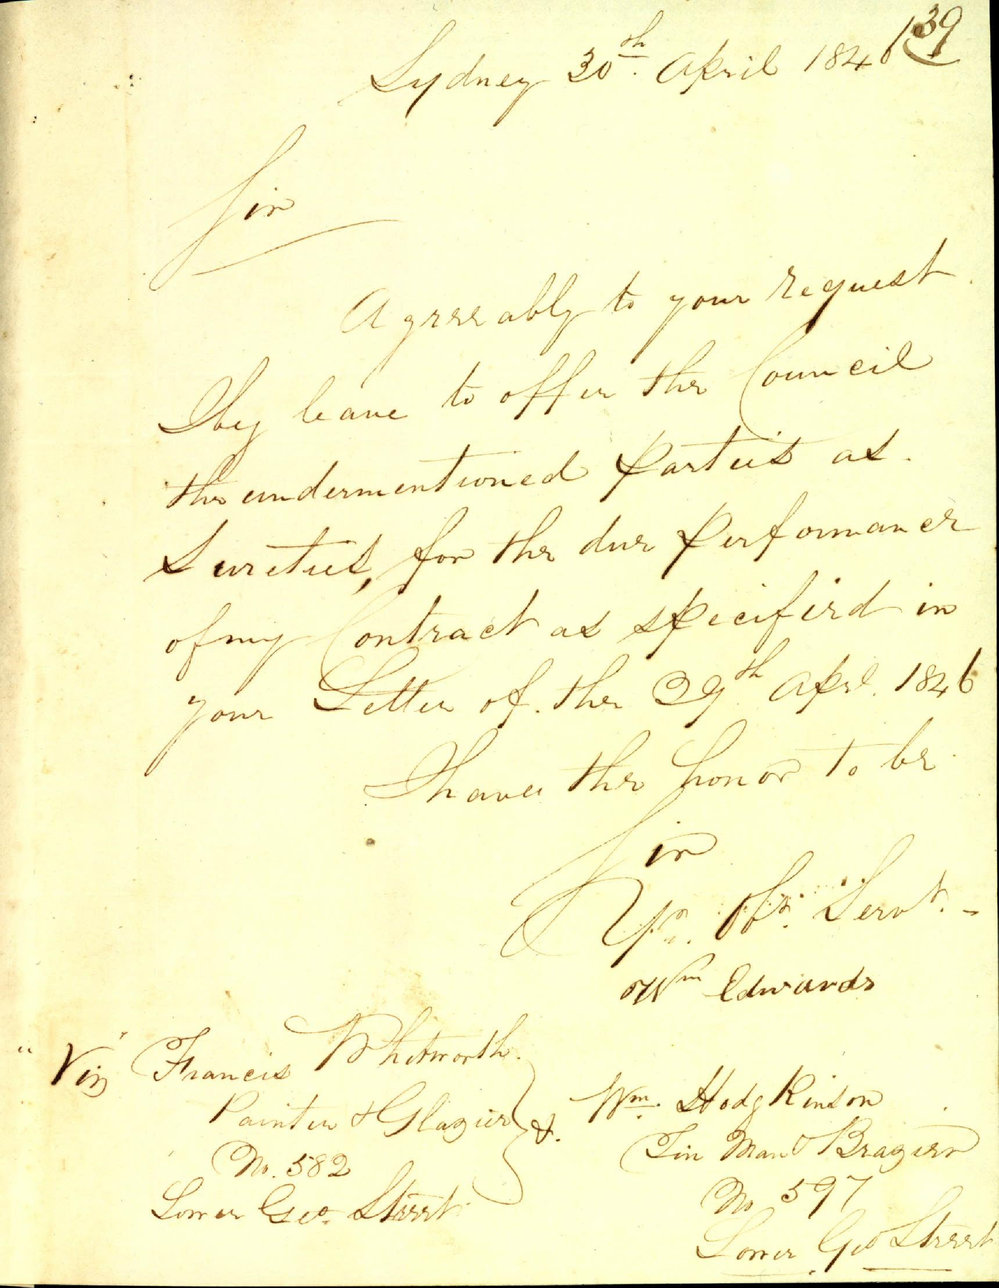 139
Sydney 30th. April 1846
Sir
Agreeably to your request
I beg leave to offer the Council
the undermentioned Parties as
Sureties, for the due performance
of my Contract as specified in
your Letter of the 29th Aprl. 1846
I have the honor to be
Sir
Yr. Obt. Servt.
Wm Edwards
"Viz" Francis Whitworth
Painter & Glazier
No. 582
Lower Geo. Street
&. Wm. Hodgkinson
Tin Man & Brazier
No 597
Lower Geo Street